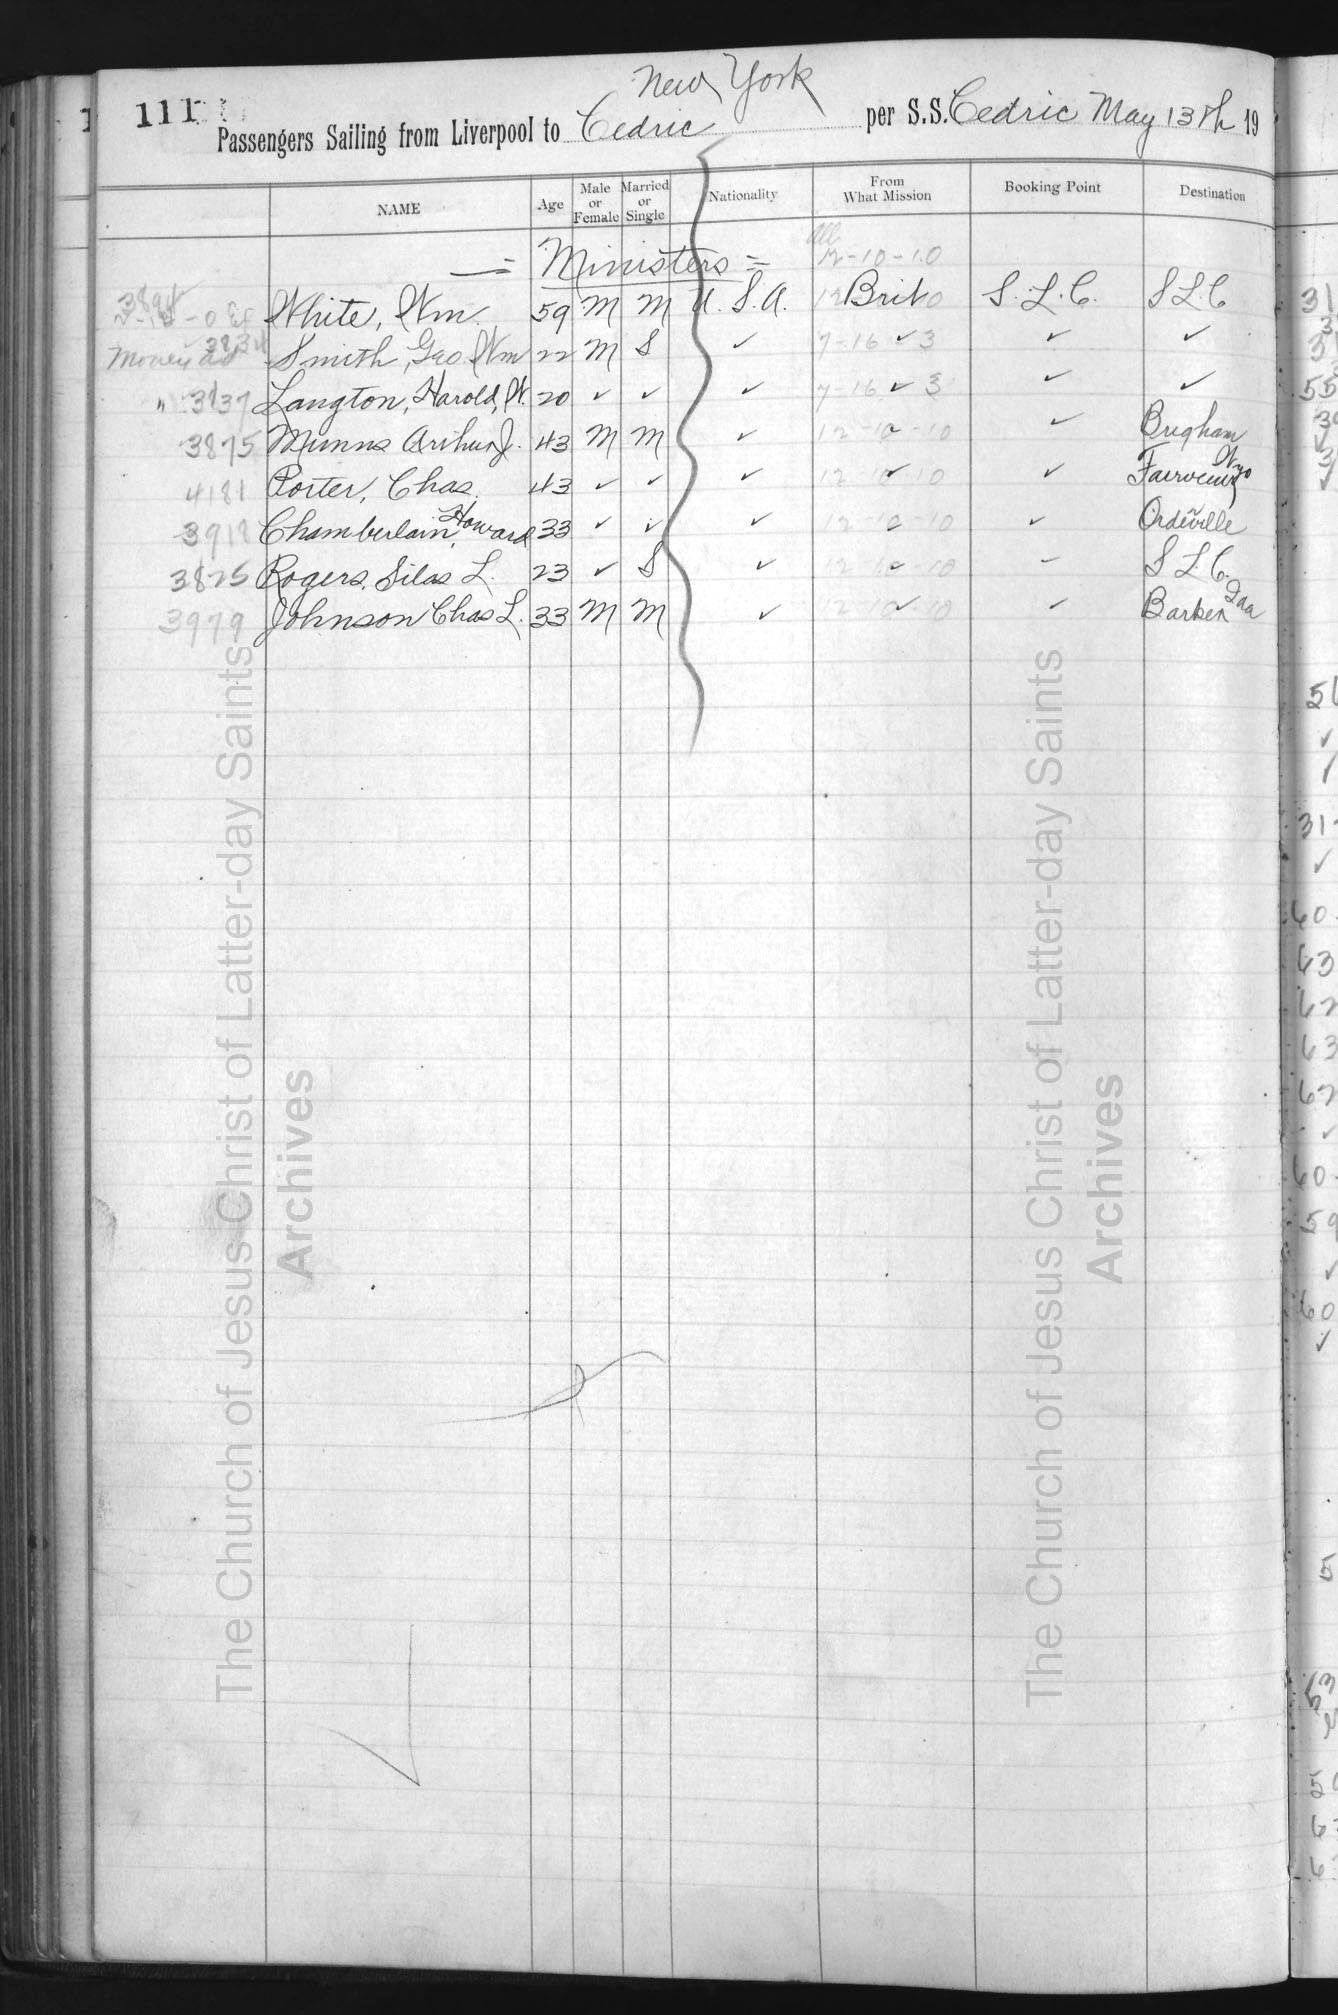 New York
111
Passengers Sailing from Liverpool to Cedric per S.S. Cedric May 13th 19
NAME Age Male or Female Married or Single Nationality From What Mission Booking Point Destination
All
= Ministers = 12-10-10
3894 White, Wm. 59 M M U.S.A. Brit S.L.C. S L C
3834 Smith, Geo Wm 22 M S ✓ 7-16 ✓ 3 ✓ ✓
" 3837 Langton, Harold, W. 20 ✓ ✓ ✓ 7-16 ✓ 3 ✓ ✓
3875 Munns Arthur J. 43 M M ✓ 12-10-10 ✓ Brigham
4181 Porter, Chas. 43 ✓ ✓ ✓ 12-10-10 ✓ Fairview Wyo
3918 Chamberlain, Howard 33 ✓ ✓ ✓ 12-10-10 ✓ Orderville
3825 Rogers, Silas L. 23 ✓ S ✓ 12-10-10 ✓ S L C.
3979 Johnson Chas L. 33 M M ✓ 12-10-10 ✓ Barken
The Church of Jesus Christ of Latter-day Saints
Archives
The Church of Jesus Christ of Latter-day Saints
Archives